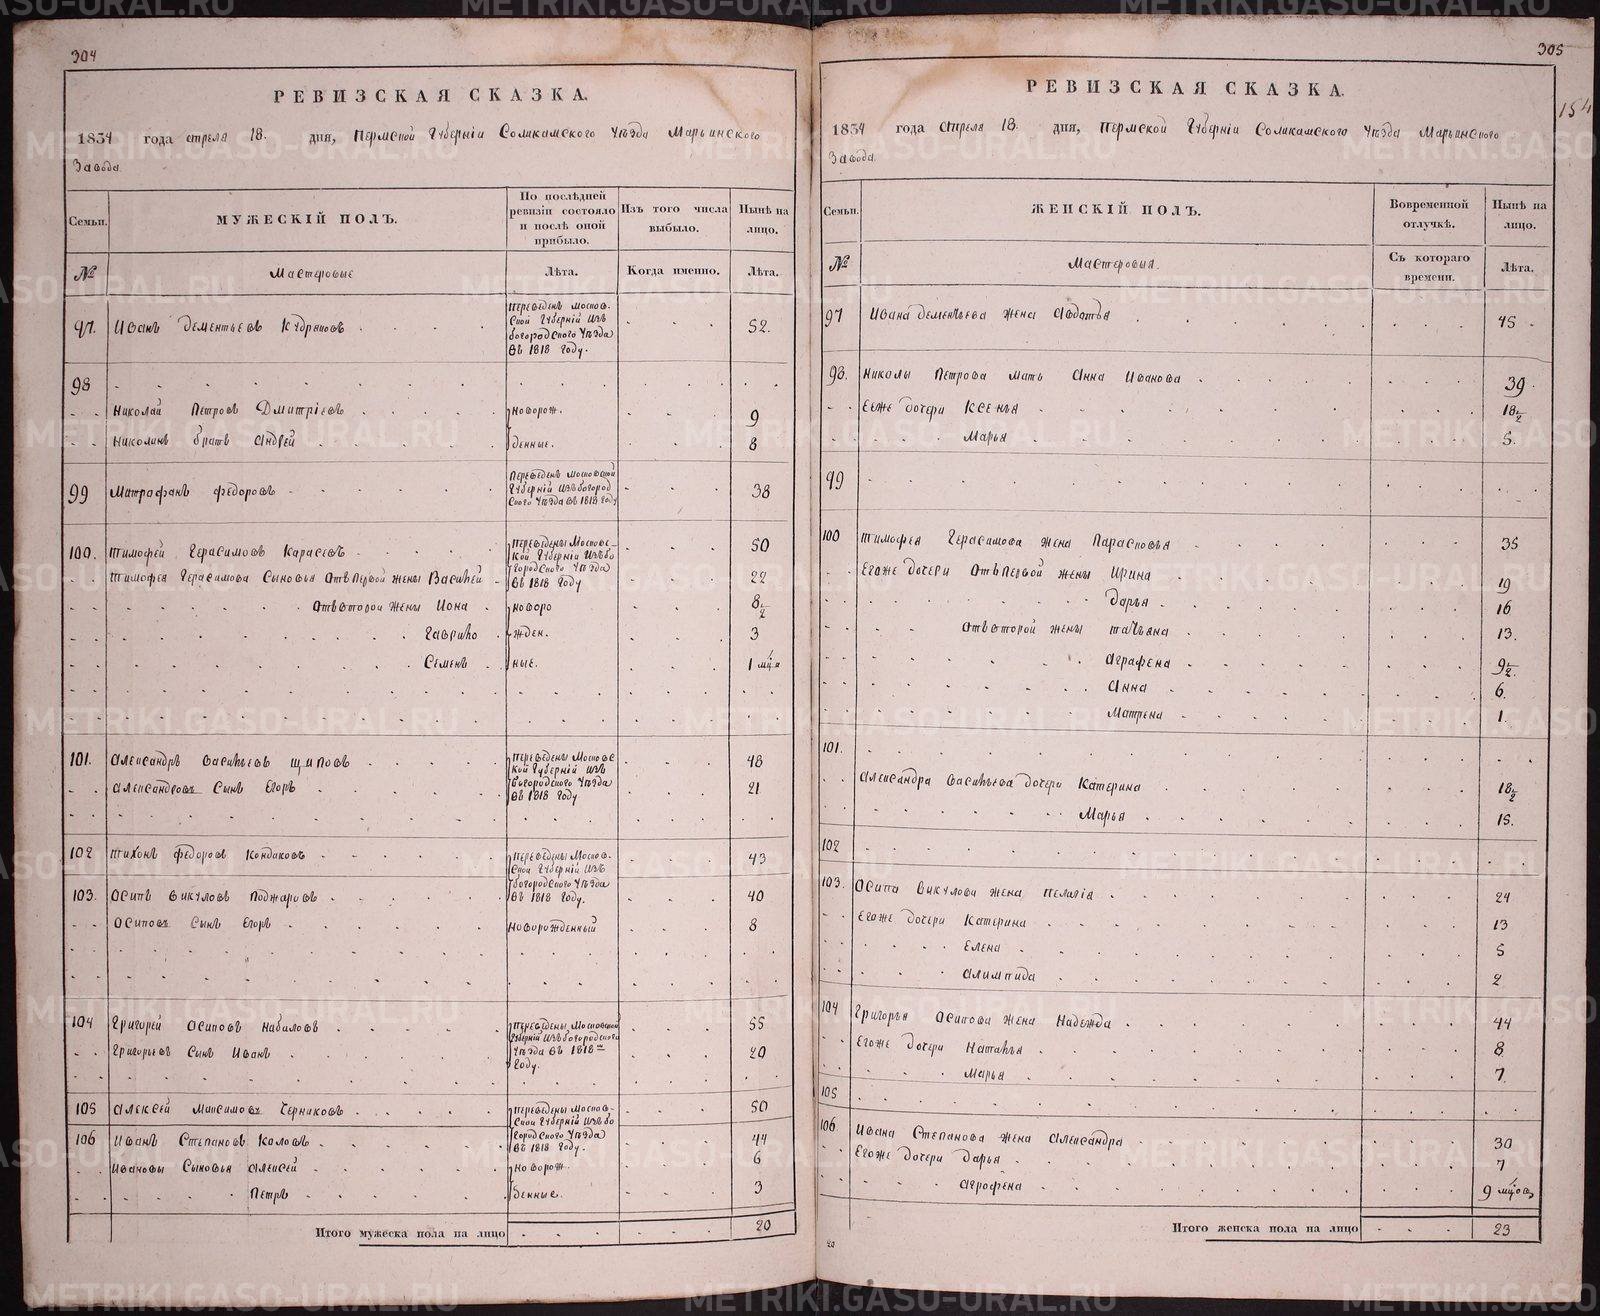 304
РЕВИЗСКАЯ СКАЗКА.
1834 года апреля 18. дня, Пермской Губерніи Соликамского Уѣзда Марьинского
Завода.
Семьи.
МУЖЕСКІЙ ПОЛЪ.
По послѣдней ревизіи состояло и послѣ оной прибыло.
Изъ того числа выбыло.
Нынѣ на лицо.
№ Мастеровые Лѣта. Когда именно. Лѣта.
97. Иванъ Дементьевъ переведенъ Москов. ской Губерніи изъ богородского Уѣзда въ 1818 Году. 52.
98
Николай Петровъ Дмитріевъ новорож. 9
Николинъ братъ Андрей денные. 8
99 Митрафанъ Федоровъ переведенъ Московской Губерніи изъ богород ского Уѣзда въ 1818 году 38
100. Тимофей Герасимовъ Карасевъ переведены Московс- кой Губерніи изъ бо городского Уѣзда въ 1818 Году 50
Тимофея Герасимова Сыновья отъ первой жены Василей 22
отъ второй жены Иона новоро 8 1/2
Гаврило жден. 3
Семенъ ные. 1 мца
101. Александръ Васильевъ Щиповъ переведены Московс кой Губерніи изъ богородского Уѣзда въ 1818 Году 48
Александровъ Сынъ Егоръ 21
102 Тихонъ Федоровъ Кондаковъ переведены Москов. ской Губерніи изъ 43
103. Осипъ Викуловъ Поджаровъ богородского Уѣзда въ 1818 Году. 40
Осиповъ Сынъ Егоръ новорожденный 8
104 Григорей Осиповъ Набаловъ переведены Московской Губерніи изъ богородского Уѣзда въ 1818 м Году. 55
Григорьевъ Сынъ Иванъ 20
105 Алексей Максимовъ Черниковъ переведены Москов- ской Губерніи изъ бо 50
106 Иванъ Степановъ Каловъ городского Уѣзда въ 1818 Году. 44
Ивановы Сыновья Алексей новорож. 6
Петръ денные. 3
Итого мужеска пола на лицо 20
305
154
РЕВИЗСКАЯ СКАЗКА.
1834 года апреля 18. дня, Пермской Губерніи Соликамского Уѣзда Марьинского
Завода.
Семьи.
ЖЕНСКІЙ ПОЛЪ.
Вовременной отлучкѣ.
Нынѣ на лицо.
№ Мастеровыя. Съ котораго времени. Лѣта.
97 Ивана Дементьева жена Авдотья 45
98. Николы Петрова мать Анна Иванова 39
Ееже дочери Ксенья 18 1/2
Марья 5.
99
100 Тимофея Герасимова жена Парасковья 35
Егоже дочери отъ первой жены Ирина 19
Дарья 16
отъ второй жены татьяна 13.
Аграфена 9 1/2.
Анна 6.
Матрена 1.
101.
Александра Васильева дочери Катерина 18 1/2
Марья 15.
102
103. Осипа Викулова жена пелагія 24
Егоже дочери Катерина 13
Елена 5
Алимпида 2
104 Григорья Осипова жена Надежда 44
Егоже дочери Наталья 8
Марья 7.
105
106. Ивана Степанова жена Александра 30
Егоже дочери Дарья 7
Аграфена 9 мцовъ
Итого женска пола на лицо 23
METRIKI.GASO-URAL.RU